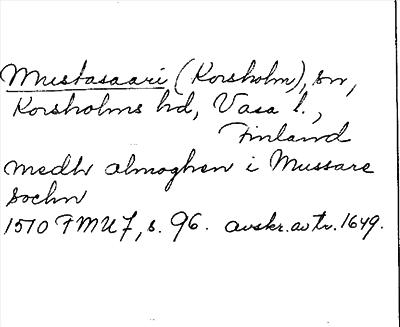 Mustasaari (Korsholm), sn,
Korsholms hd, Vasa l.,
Finland
medh almoghen i Mussare
sochn
1510 FMU 7, s. 96. avskr. av tr. 1649.